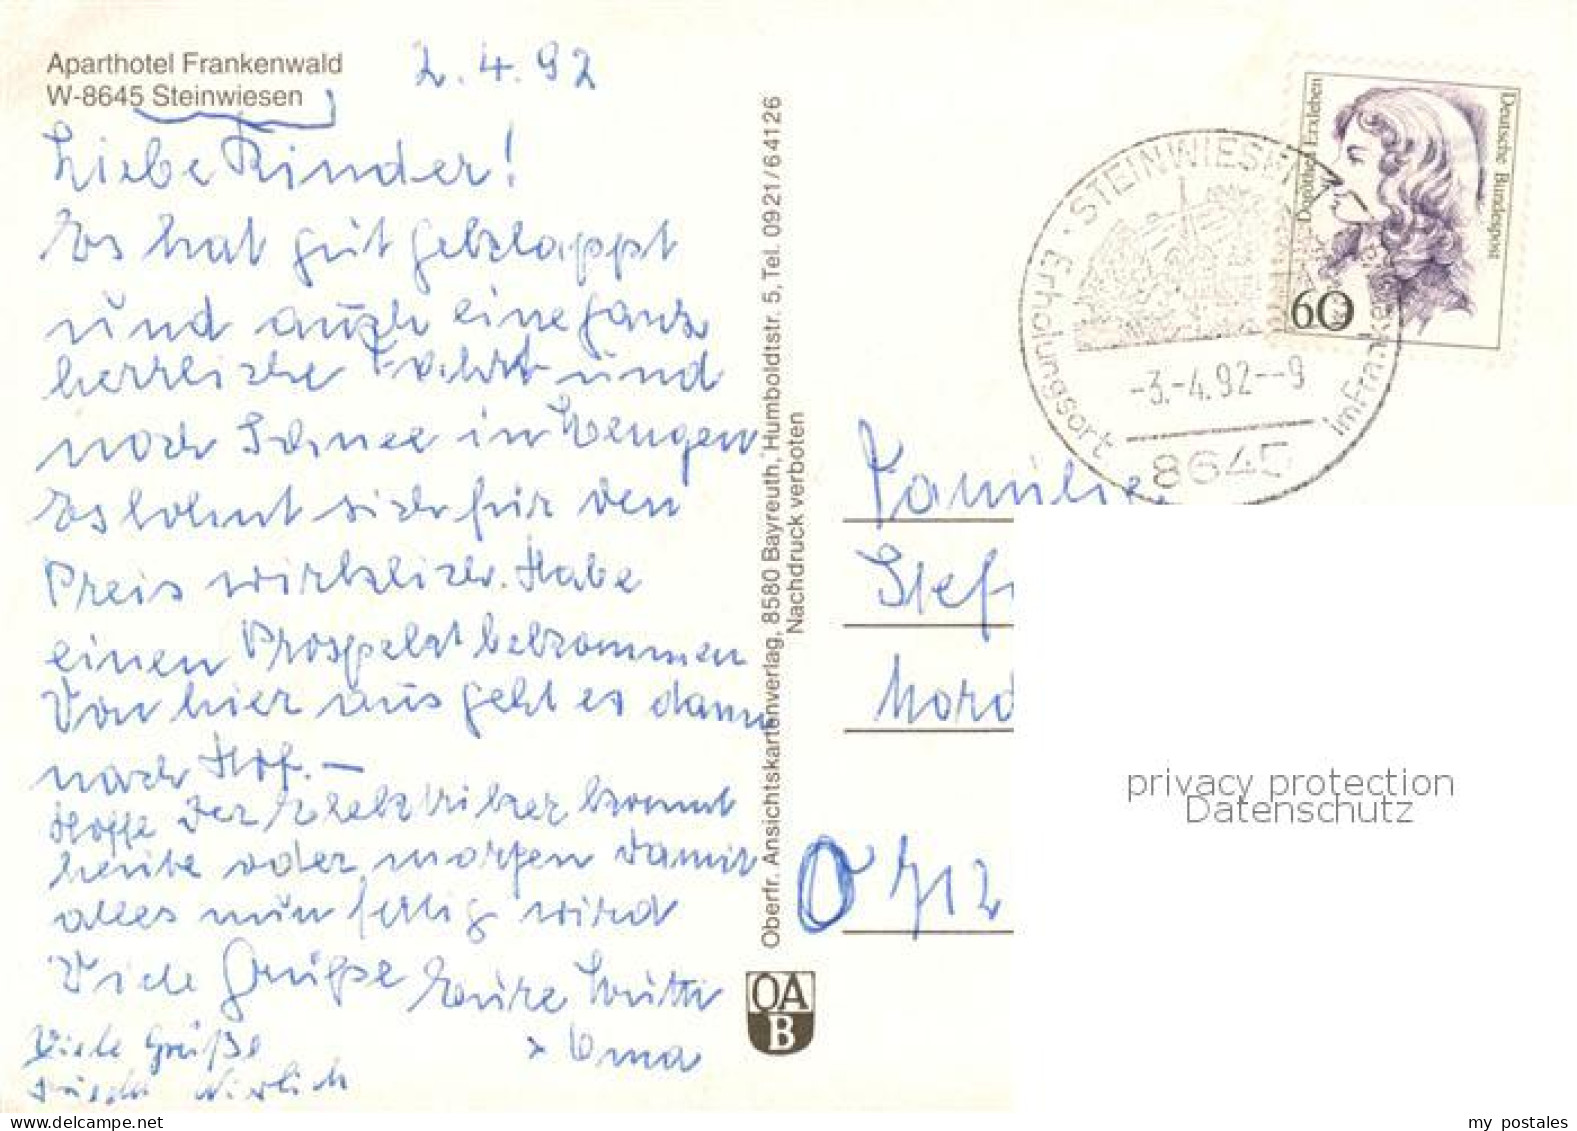 Aparthotel Frankenwald
W-8645 Steinwiesen
2.4.92
Liebe Kinder!
Es hat gut geklappt
und auch eine ganz
herrliche Fahrt und
noch Schnee in Mengen
Es lohnt sich für den
Preis wirklich. Habe
einen Prospekt bekommen
Von hier aus geht es dann
nach Hof. —
Hoffe der Elektriker kommt
heute oder morgen damit
alles nun fertig wird
Viele Grüße Eure Mutti
+ Oma
Viele Grüße
Oberfr. Ansichtskartenverlag, 8580 Bayreuth, Humboldtstr. 5, Tel. 0921/64126
Nachdruck verboten
OA
B
STEINWIESEN
Erholungsort
im Franken
-3.-4.92--9
8645
Deutsche Bundespost
Dorothea Erxleben
60
Familie
Stef
Nord
O 712
privacy protection
Datenschutz
my postales